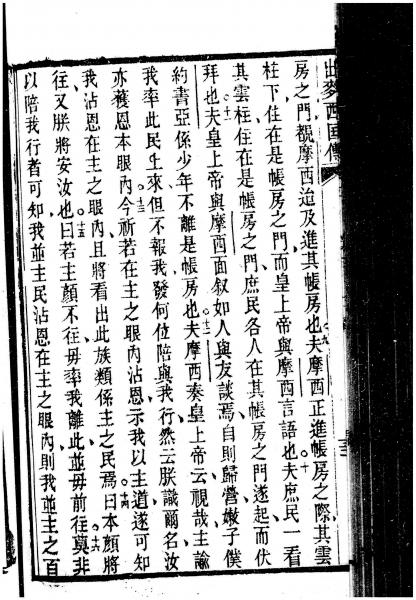 出麥西國傳
房之門覩摩西迨及進其帳房也。九夫摩西正進帳房之際其雲
柱下住在是帳房之門而皇上帝與摩西言語也夫庶民一看
其雲柱住在是帳房之門庶民各人在其帳房之門遂起而伏
拜也。十一夫皇上帝與摩西面叙如人與友談焉自則歸營嫩子僕
約書亞係少年不離是帳房也。十二夫摩西奏皇上帝云視哉主諭
我率此民生來但不報我發何位陪與我行然云朕識爾名汝
亦獲恩本眼內。十三今祈若在主之眼內沾恩示我以主道遂可知
我沾恩在主之眼內且將看出此族類係主之民焉。十四曰本顏將
往又朕將安汝也。十五曰若主顏不往毋率我離此並毋前往。十六莫非
以陪我行者可知我並主民沾恩在主之眼內則我並主之百